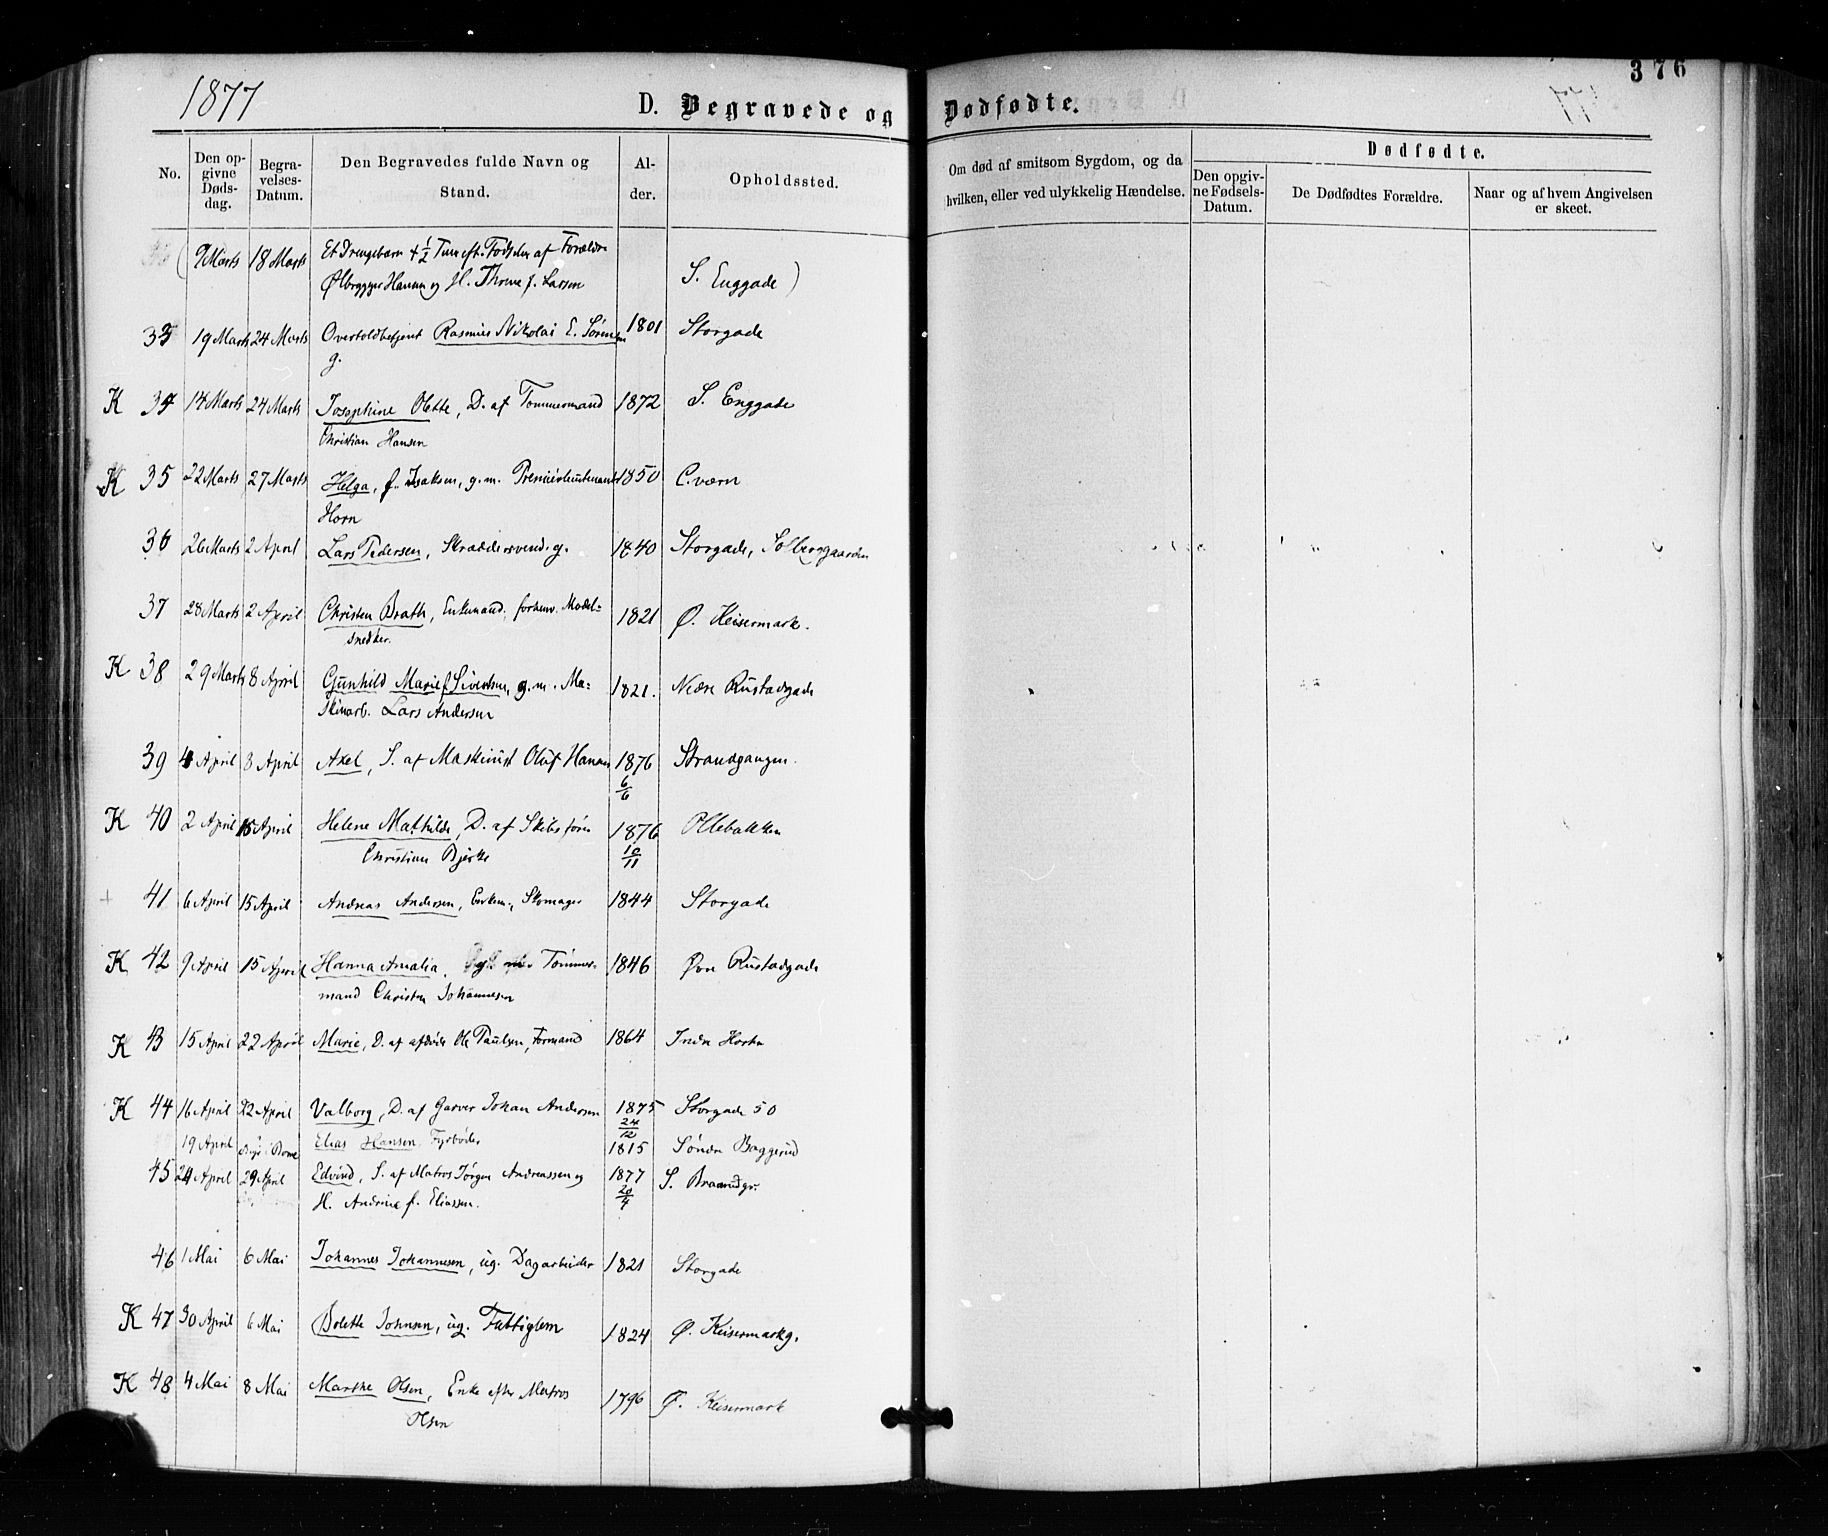 376
1877
D. Begravede og Dødfødte.
No.
Den opgivne Dødsdag.
Begravelses-Datum.
Den Begravedes fulde Navn og Stand.
Alder.
Opholdssted.
Om død af smitsom Sygdom, og da hvilken, eller ved ulykkelig Hændelse.
Dødfødte.
Den opgivne Fødsels-Datum.
De Dødfødtes Forældre.
Naar og af hvem Angivelsen er skeet.
( 9 Marts 18 Marts Et Drengebarn † ½ Time eft. Fødselen af Forældre
Ølbrygger Hansen og H. Thrine f. Larsen S. Enggade )
33 19 Marts 24 Marts Overtoldbetjent Rasmus Nikolai E. Sørensen 1801 Storgade
g.
K 34 14 Marts 24 Marts Josephine Olette, D. af Tømmermand 1872 S. Enggade
Christian Hansen
K 35 22 Marts 27 Marts Helga, f. Isaksen, g.m. Premierleutenant 1850 C.værn
Horn
36 26 Marts 2 April Lars Pedersen, Skræddersvend g. 1840 Storgade, Solberggaarden
37 28 Marts 2 April Christen Brath, Enkemand, forhenv. Model- 1821 Ø. Keisermark.
snedker.
K 38 29 Marts 8 April Gunhild Marie f. Sivertsen, g.m. Ma- 1821. Nedre Rustadgade
skinarb. Lars Andersen
39 4 April 8 April Axel, S. af Maskinist Oluf Hansen 1876 6/6 Strandgangen.
K 40 2 April 15 April Helene Mathilde, D. af Skibsfører 1876 10/11 Ollebakken
Christian Bjerke
+ 41 6 April 15 April Andreas Andersen, Enkem., Skomager 1844 Storgade
K 42 9 April 15 April Hanna Amalia, Tømmer- 1846 Øvre Rustadgade
mand Christen Johannesen
K 43 15 April 22 April Marie, D. af afdøde Ole Paulsen, Formand 1864 Indre Horten
K 44 16 April 22 April Valborg, D. af Garver Johan Andersen 1875 24/12 Storgade 50
19 April Elias Hansen, Fyrbøder 1815 Søndre Baggerud
45 24 April 29 April Edvind, S. af Matros Jørgen Andreassen og 1877 20/4 S. Braarudgr.
H. Andrine f. Eliassen.
46 1 Mai 6 Mai Johannes Johannesen, ug. Dagarbeider 1821 Storgade
K 47 30 April 6 Mai Bolette Johnsen, ug. Fattiglem 1824 Ø. Keisermarkg.
K 48 4 Mai 8 Mai Marthe Olsen, Enke efter Matros 1796 Ø. Keisermark
Olsen